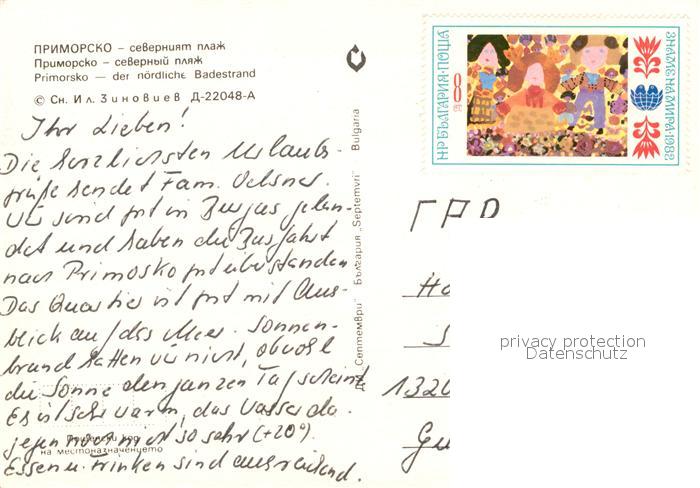 ПРИМОРСКО – северният плаж
Приморско – северный пляж
Primorsko — der nördliche Badestrand
© Сн. Ил. Зиновиев Д-22048-А
Ihr Lieben!
Die herzlichsten Urlaubs-
grüße sendet Fam. Oelsner.
Wir sind gut in Burgas gelan-
det und haben die Busfahrt
nach Primosko gut überstanden
Das Quartier ist gut mit Aus-
blick auf das Meer. Sonnen-
brand hatten wir nicht, obwohl
die Sonne den ganzen Tag scheint
Es ist sehr warm, das Wasser da-
gegen noch nicht so sehr (+20°).
Essen u. Trinken sind ausreichend.
на местоназначението
ДИ „Септември" България „Septemvri" Bulgaria
НР БЪЛГАРИЯ·ПОЩА
8
ЗНАМЕ НА МИРА·1982
ГРР
1320
privacy protection
Datenschutz